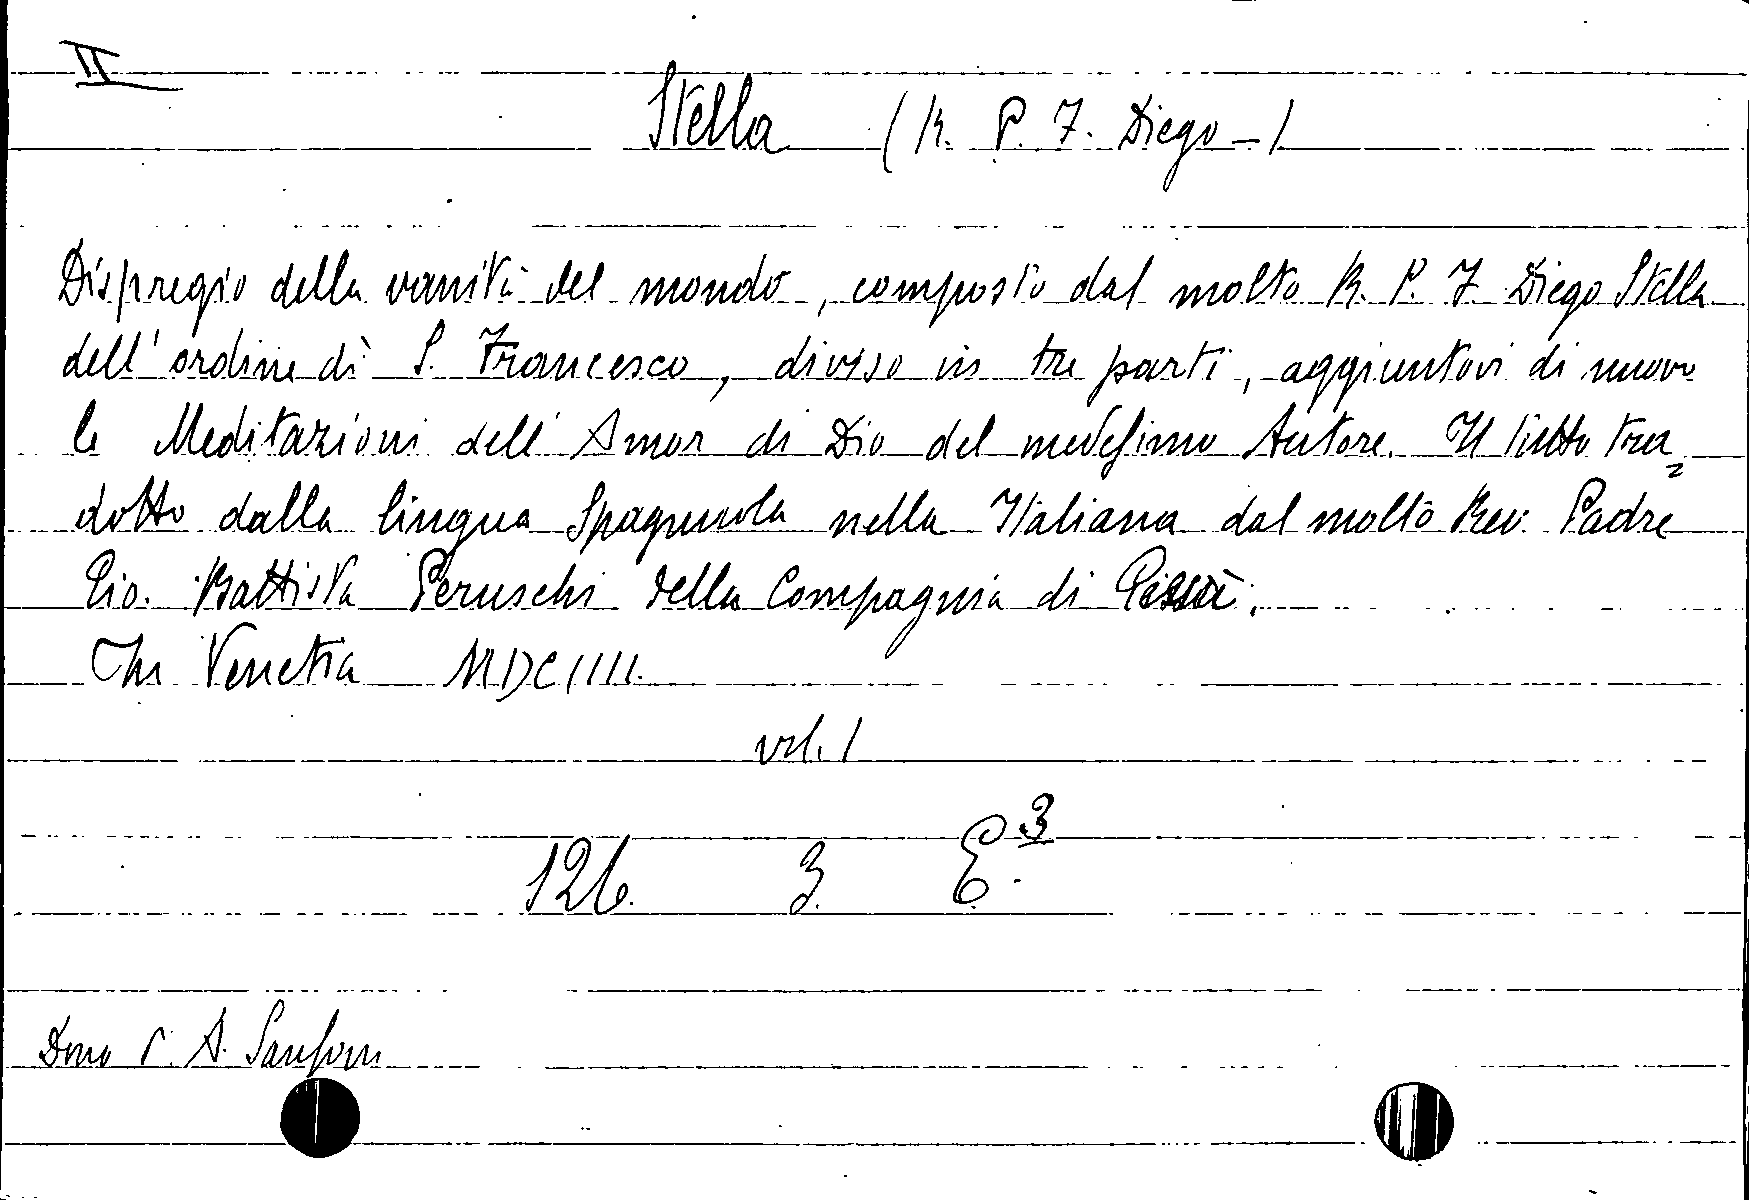 II
Stella (R. P. F. Diego -)
Dispregio della vanità del mondo, composto dal molto R. P. F. Diego Stella
dell'ordine di S. Francesco, diviso in tre parti, aggiuntovi di nuovo
le Meditazioni dell'Amor di Dio del medesimo Autore. Il tutto tra=
dotto dalla lingua Spagnuola nella Italiana dal molto Rev. Padre
Gio. Battista Peruschi della Compagnia di Giesù.
In Venetia MDCIIII.
vol. 1
126. 3. E.3
Dono P. A.